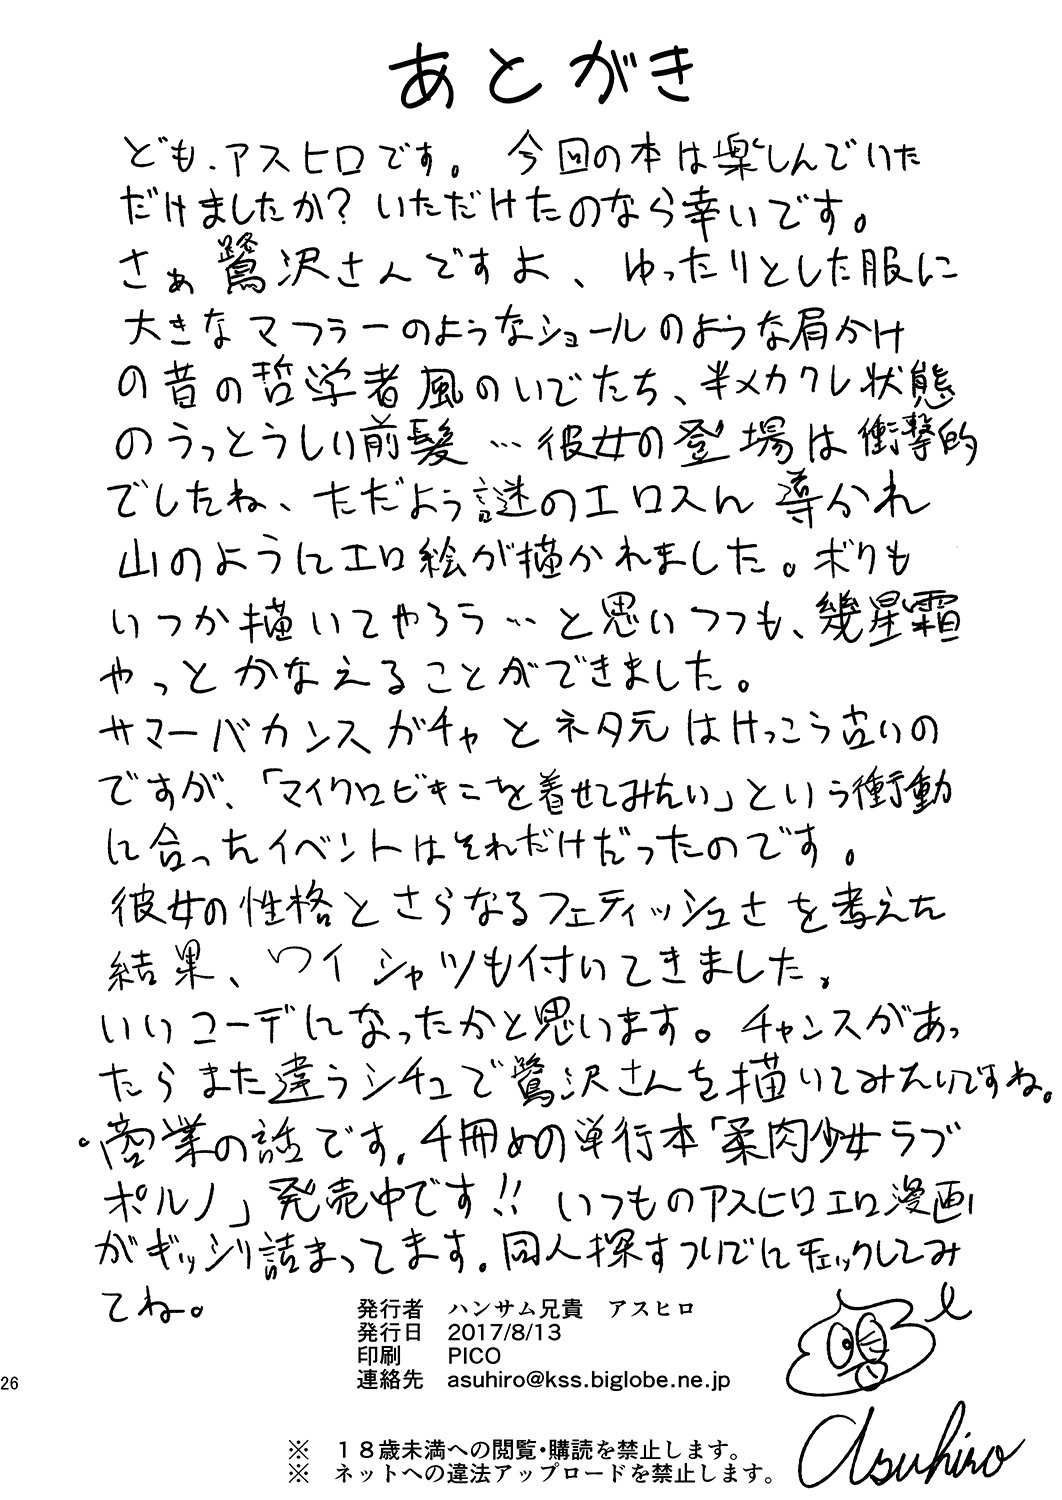 あとがき
ども、アスヒロです。今回の本は楽しんでいた
だけましたか?いただけたのなら幸いです。
さぁ鷺沢さんですよ、ゆったりとした服に
大きなマフラーのようなショールのような肩かけ
の昔の哲学者風のいでたち、半メカクレ状態
のうっとうしい前髪…彼女の登場は衝撃的
でしたね、ただよう謎のエロスん導かれ
山のようにエロ絵が描かれました。ボクも
いつか描いてやろう…と思いつつも、幾星霜
やっとかなえることができました。
サマーバカンスガチャとネタ元はけっこう古いの
ですが、「マイクロビキニを着せてみたい」という衝動
に合ったイベントはそれだけだったのです。
彼女の性格とさらなるフェティッシュさを考えた
結果、ワイシャツも付いてきました。
いいコーデになったかと思います。チャンスがあっ
たらまた違うシチュで鷺沢さんを描いてみたいですね。
・商業の話です。4冊めの単行本「柔肉少女ラブ
ポルノ」発売中です!!いつものアスヒロエロ漫画
がギッシリ詰まってます。同人探すついでにチェックしてみ
てね。
発行者 ハンサム兄貴 アスヒロ
発行日 2017/8/13
印刷 PICO
連絡先 asuhiro@kss.biglobe.ne.jp
26
Asuhiro
※ 18歳未満への閲覧・購読を禁止します。
※ ネットへの違法アップロードを禁止します。